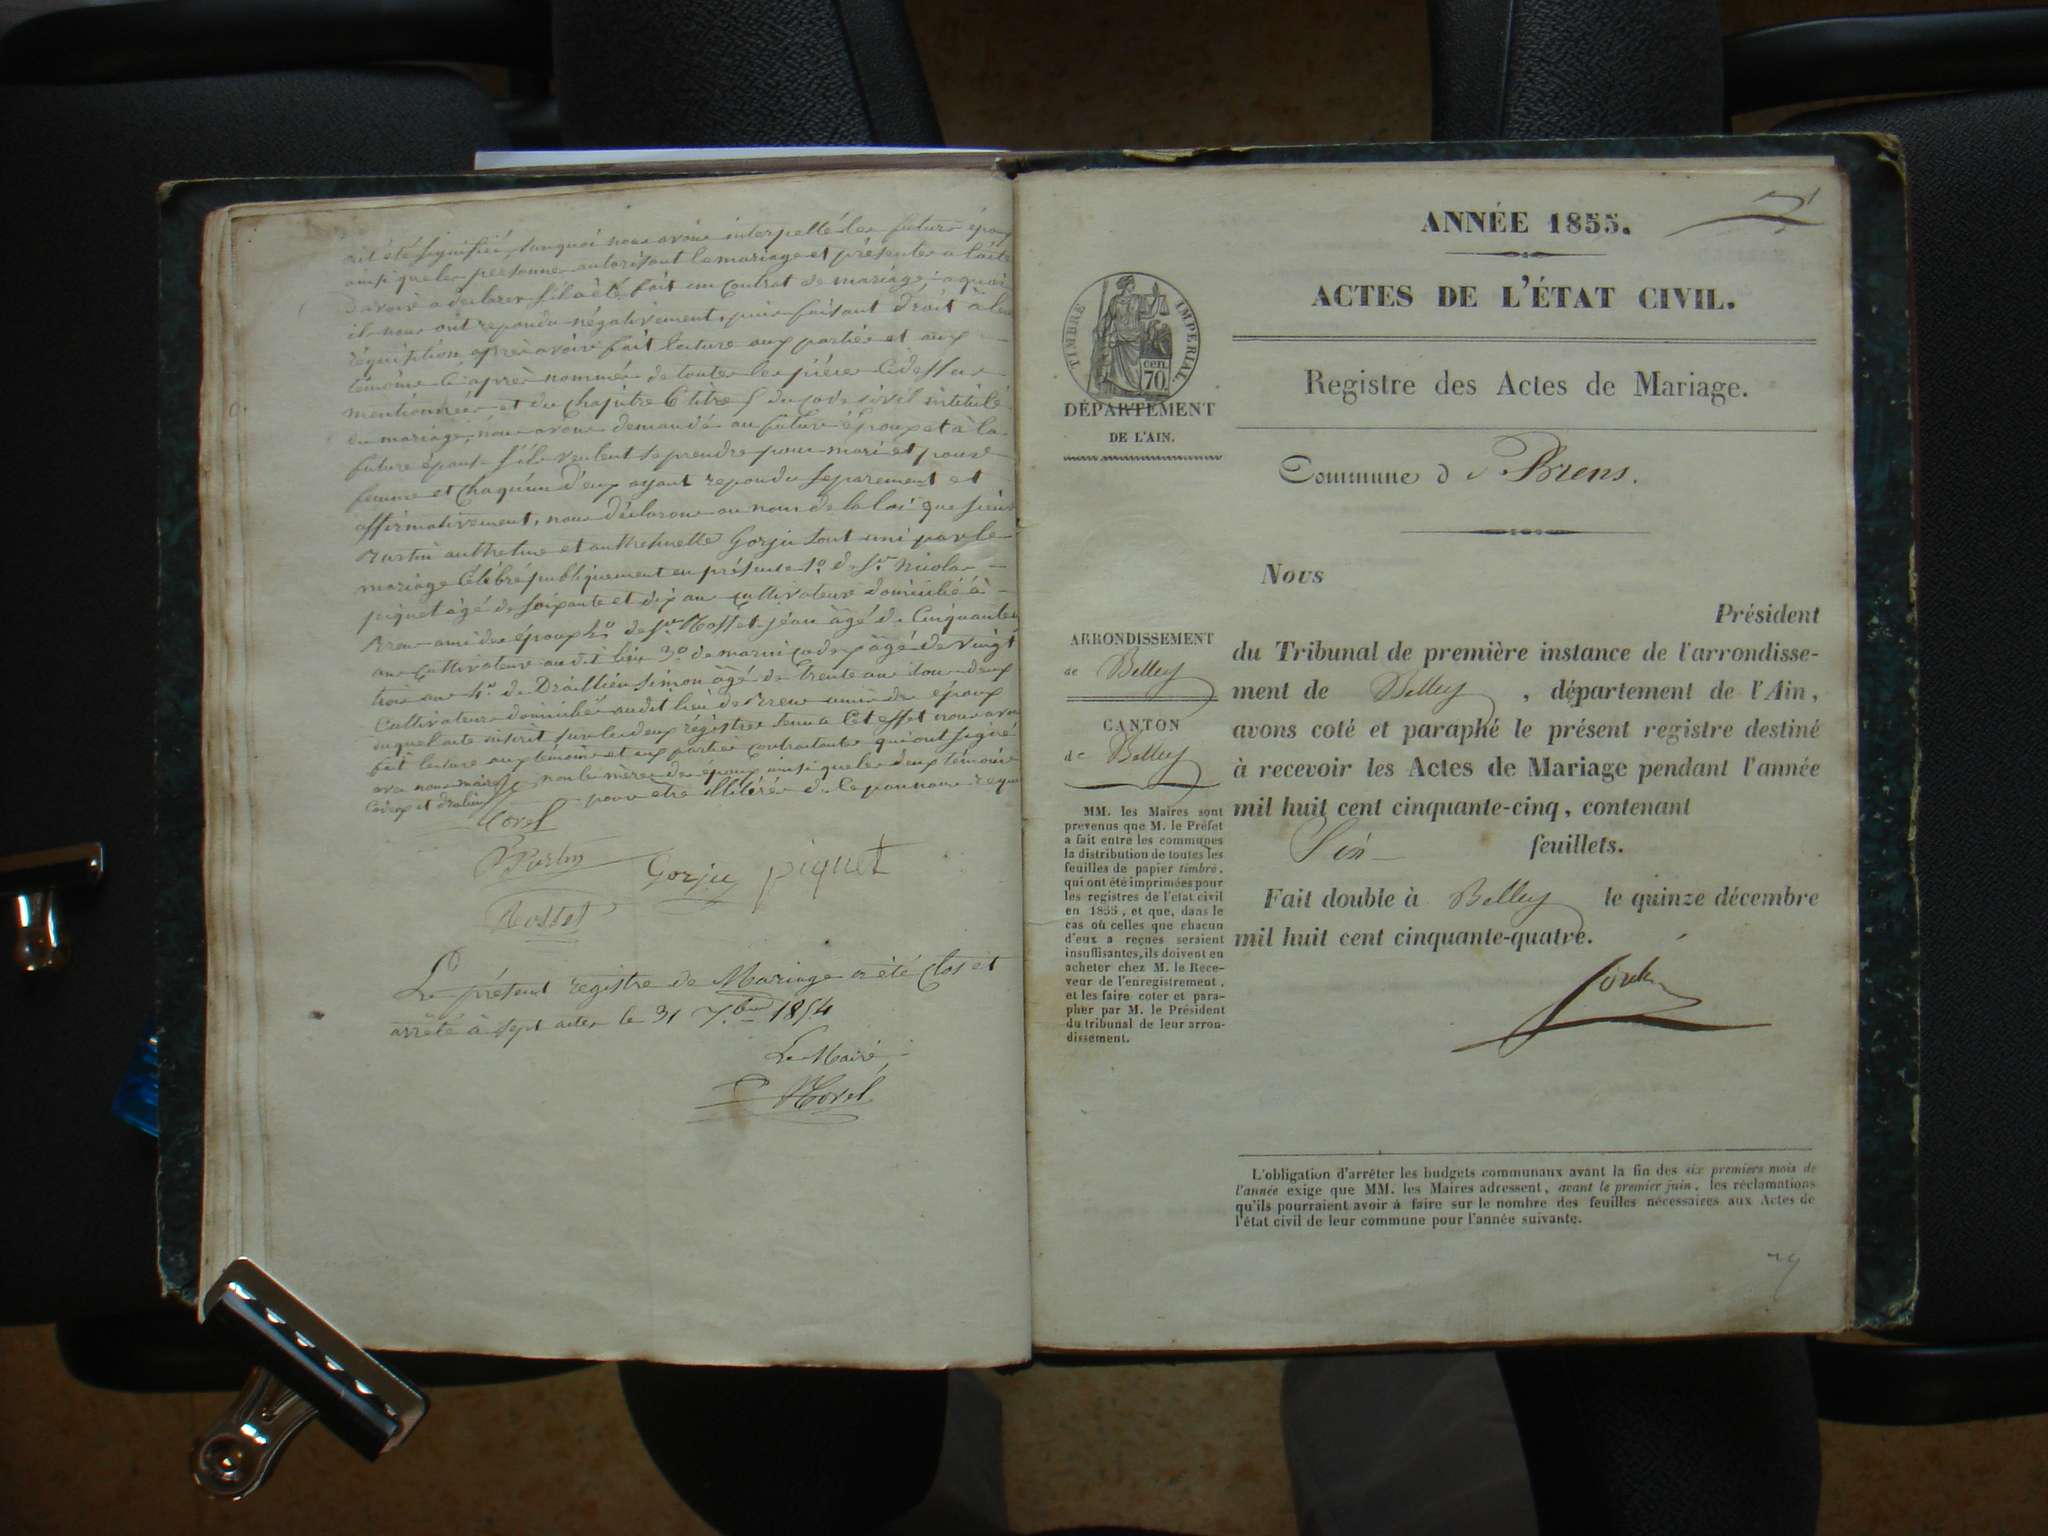 ait été signifié, surquoi nous avons interpellé les futurs époux
ainsi que les personnes autorisant le mariage et présentes a l'acte
d'avoir a declarer s'il a été fait un contrat de mariage, a quoi
il nous ont repondu négativement, puis faisant droit à leur
réquisition après avoir fait lecture aux parties et aux
témoins ci après nommés de toutes les pièces ci dessus
mentionnées et du chapitre 6 titre 5 du code civil intitulé
du mariage, nous avons demandé au futur époux et à la
future épouse s'ils veulent se prendre pour mari et pour
femme et chaqu'un d'eux ayant repondu séparement et
affirmativement, nous déclarons au nom de la loi que sieur
Martin anthelme et anthelmette Gorju sont uni par le
mariage célébré publiquement en présence 1º de sr Nicolas
piquet âgé de soixante et dix ans cultivateur domicilié à
Brens ami des époux 2º de sr Rosset jéan âgé de cinquante
ans cultivateur au dit lieu 3º de marin âgé de vingt
trois ans 4º de simon âgé de trente ans tous deux
cultivateurs domiciliés audit lieu de Brens amis des époux
duquel acte inscrit sur les deux régistres tenu a cet effet nous avons
fait lecture aux témoins et aux parties contractantes qui ont signé
avec nous maire, non la mère des époux ainsi que les deux témoins
pour être illitérés de ce par nous requis
Morel
Gorju piquet
Rosset
Le présent registre de Mariage a été clos et
arrêté à sept actes le 31 Xbre 1854
Le Maire
Morel
ANNÉE 1855.
ACTES DE L'ÉTAT CIVIL.
TIMBRE IMPÉRIAL
70 cen.
Registre des Actes de Mariage.
DÉPARTEMENT
DE L'AIN.
Commune de Brens.
Nous
Président
ARRONDISSEMENT
de Belley
CANTON
de Belley
du Tribunal de première instance de l'arrondisse-
ment de Belley, département de l'Ain,
avons coté et paraphé le présent registre destiné
à recevoir les Actes de Mariage pendant l'année
mil huit cent cinquante-cinq, contenant
Six feuillets.
Fait double à Belley le quinze décembre
mil huit cent cinquante-quatre.
MM. les Maires sont
prévenus que M. le Préfet
a fait entre les communes
la distribution de toutes les
feuilles de papier timbré,
qui ont été imprimées pour
les registres de l'état civil
en 1855, et que, dans le
cas où celles que chacun
d'eux a reçues seraient
insuffisantes, ils doivent en
acheter chez M. le Rece-
veur de l'enregistrement,
et les faire coter et para-
pher par M. le Président
du tribunal de leur arron-
dissement.
L'obligation d'arrêter les budgets communaux avant la fin des six premiers mois de
l'année exige que MM. les Maires adressent, avant le premier juin, les réclamations
qu'ils pourraient avoir à faire sur le nombre des feuilles nécessaires aux Actes de
l'état civil de leur commune pour l'année suivante.